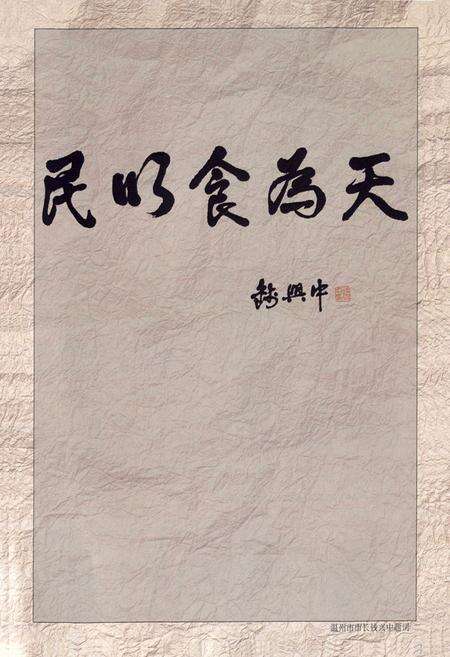 民以食為天
錢興中
温州市市长钱兴中题词